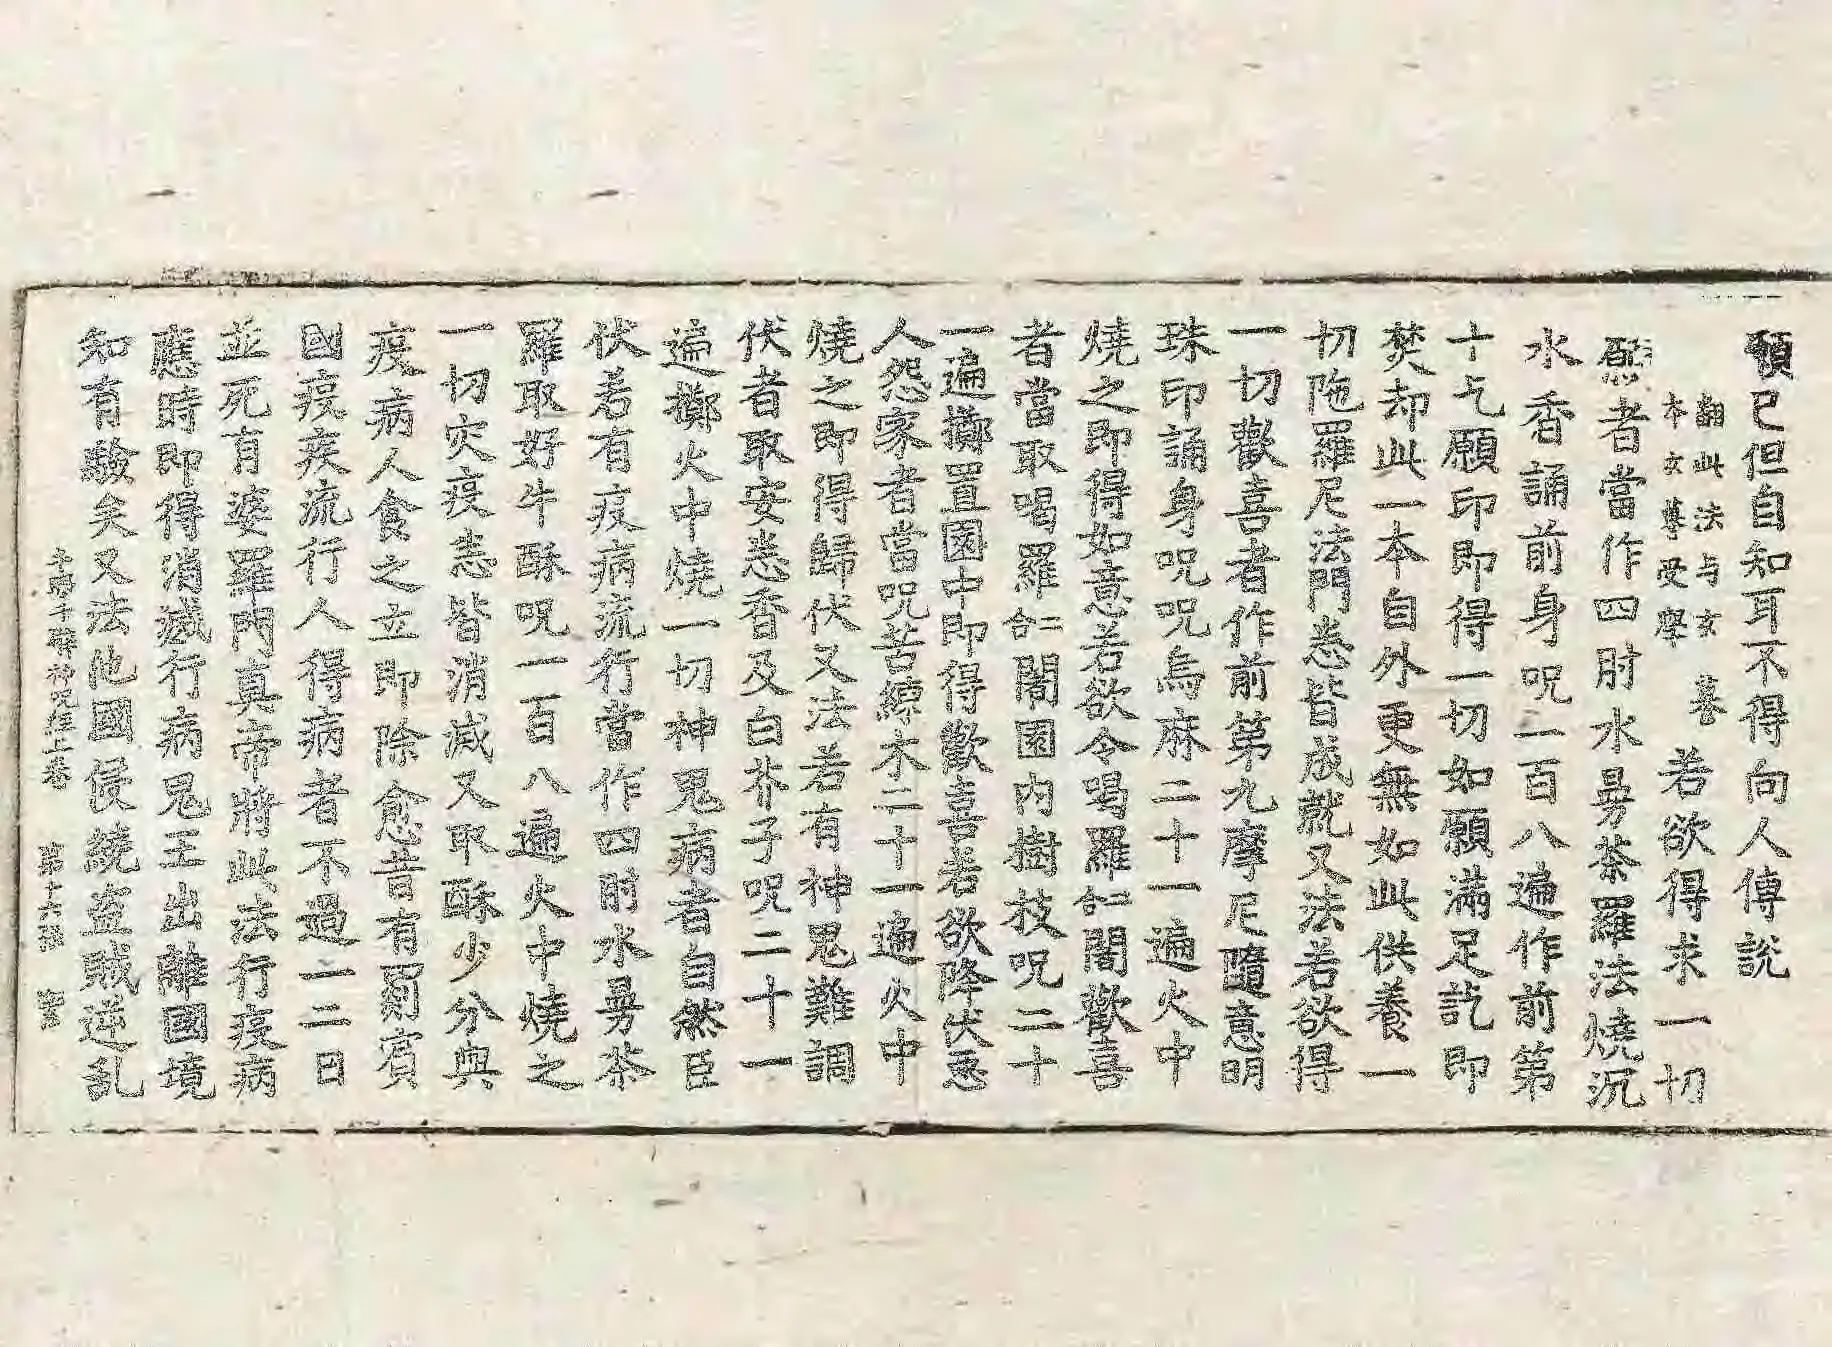 願已但自知耳不得向人傳說
翻此法与玄暮
本玄暮受學
若欲得求一切
願者當作四肘水曼茶羅法燒沉
水香誦前身呪一百八遍作前第
十七願印即得一切如願滿足訖即
焚却此一本自外更無如此供養一
切陁羅尼法門悉皆成就又法若欲得
一切歡喜者作前第九摩尼隨意明
珠印誦身呪呪烏麻二十一遍火中
燒之即得如意若欲令喝羅二合闍歡喜
者當取喝羅二合闍園內樹枝呪二十
一遍擲置園中即得歡喜若欲降伏惡
人怨家者當呪苦練木二十一遍火中
燒之即得歸伏又法若有神鬼難調
伏者取安悉香及白芥子呪二十一
遍擲火中燒一切神鬼病者自然臣
伏若有疫病流行當作四肘水曼茶
羅取好牛酥呪一百八遍火中燒之
一切灾疫悉皆消滅又取酥少分與
疫病人食之立即除愈昔有罽賓
國疫疾流行人得病者不過一二日
並死有婆羅門真帝將此法行疫病
應時即得消滅行病鬼王出離國境
知有驗矣又法他國侵繞盗賊逆乱
千眼千臂神呪經上卷 第十六張